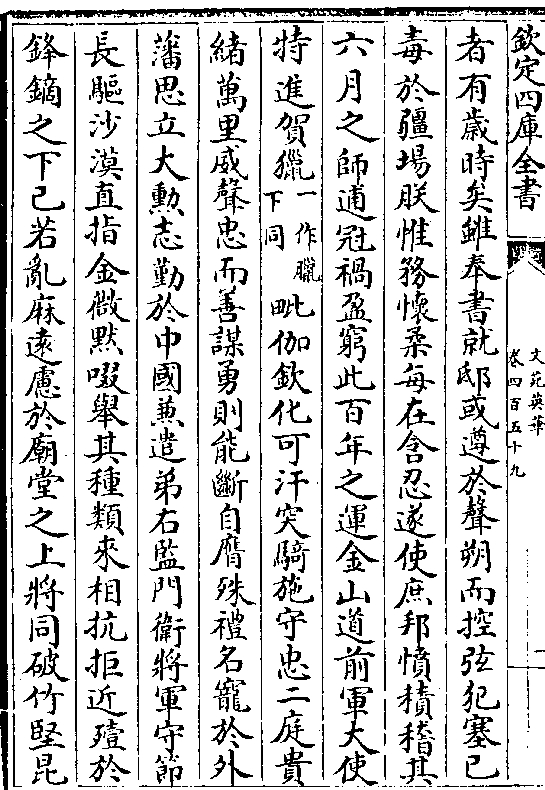 欽定四庫全書
文苑英華
卷四百五十九
者有歲時矣雖奉書就邸或遵於聲朔而控弦犯塞已
毒於疆場朕惟務懷柔每在含忍遂使庶邦憤積稽其
六月之師逋冠禍盈窮此百年之運金山道前軍大使
特進賀獵一作臘下同毗伽欽化可汗突騎施守忠二庭貴
緒萬里威聲忠而善謀勇則能斷自膺殊禮名寵於外
藩思立大勲志勤於中國兼遣弟右監門衛將軍守節
長驅沙漠直指金微黙啜舉其種類來相抗拒近殪於
鋒鏑之下已若亂麻遠慮於廟堂之上將同破竹堅昆